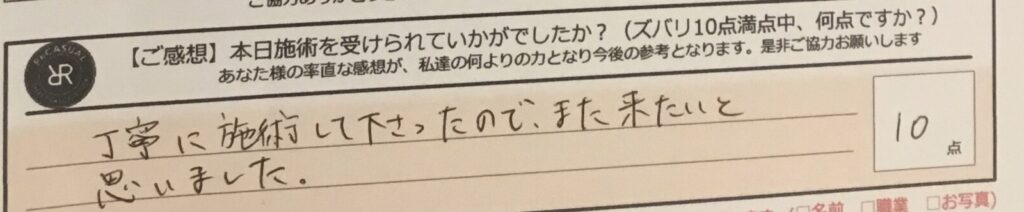 ご協力ありがとう
【ご感想】本日施術を受けられていかがでしたか？（ズバリ10点満点中、何点ですか？）
あなた様の率直な感想が、私達の何よりの力となり今後の参考となります。是非ご協力お願いします
丁寧に施術して下さったので、また来たいと
思いました。
10点
□名前 □職業 □お写真)